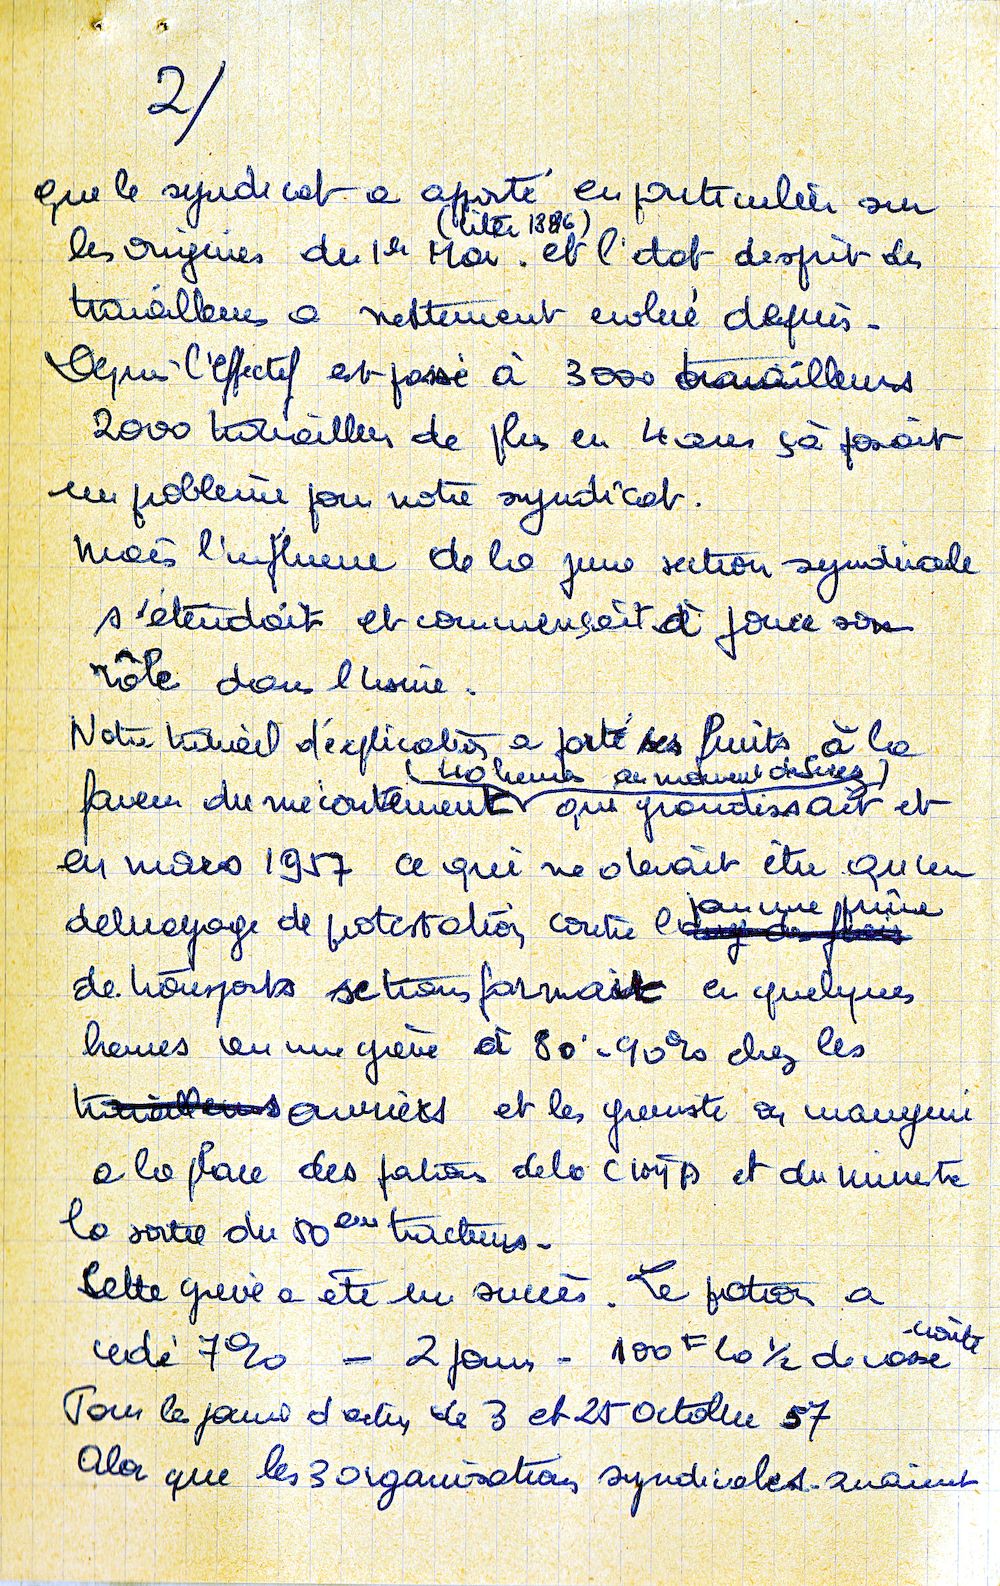 2/
que le syndicat a aporté en particulier sur
(lutte 1886)
les origines du 1er Mai. et l'etat desprit des
travailleurs a nettement evolué depuis -
Depuis l'effectif est passé à 3000 travailleurs
2000 travailleurs de plus en 4 ans çà posait
un probleme pour notre syndicat.
mais l'influence de la jeune section syndicale
s'étendait et commençait à jouer son
rôle dans l'usine.
Notre travail d'explication a porté ses fruits à la
au moment de Suez)
faveur du mecontentement que grandissait et
en mars 1957 ce qui ne devait être qu'un
pour une prime
debrayage de protestation contre
de transports se transformait en quelques
heures en une grève à 80 - 90% chez les
travailleurs ouvriers et les grevistes
a la place des patrons de la et du ministre
la sortie du 50eme tracteurs -
Cette grève a été un succès. Le patron a
cedé 7% - 2 jours - 100F la 1/2 de casse
-croûte
Pour la journée d'action de 3 et 25 Octobre 57
Alor que les 3 organisations syndicales avaient